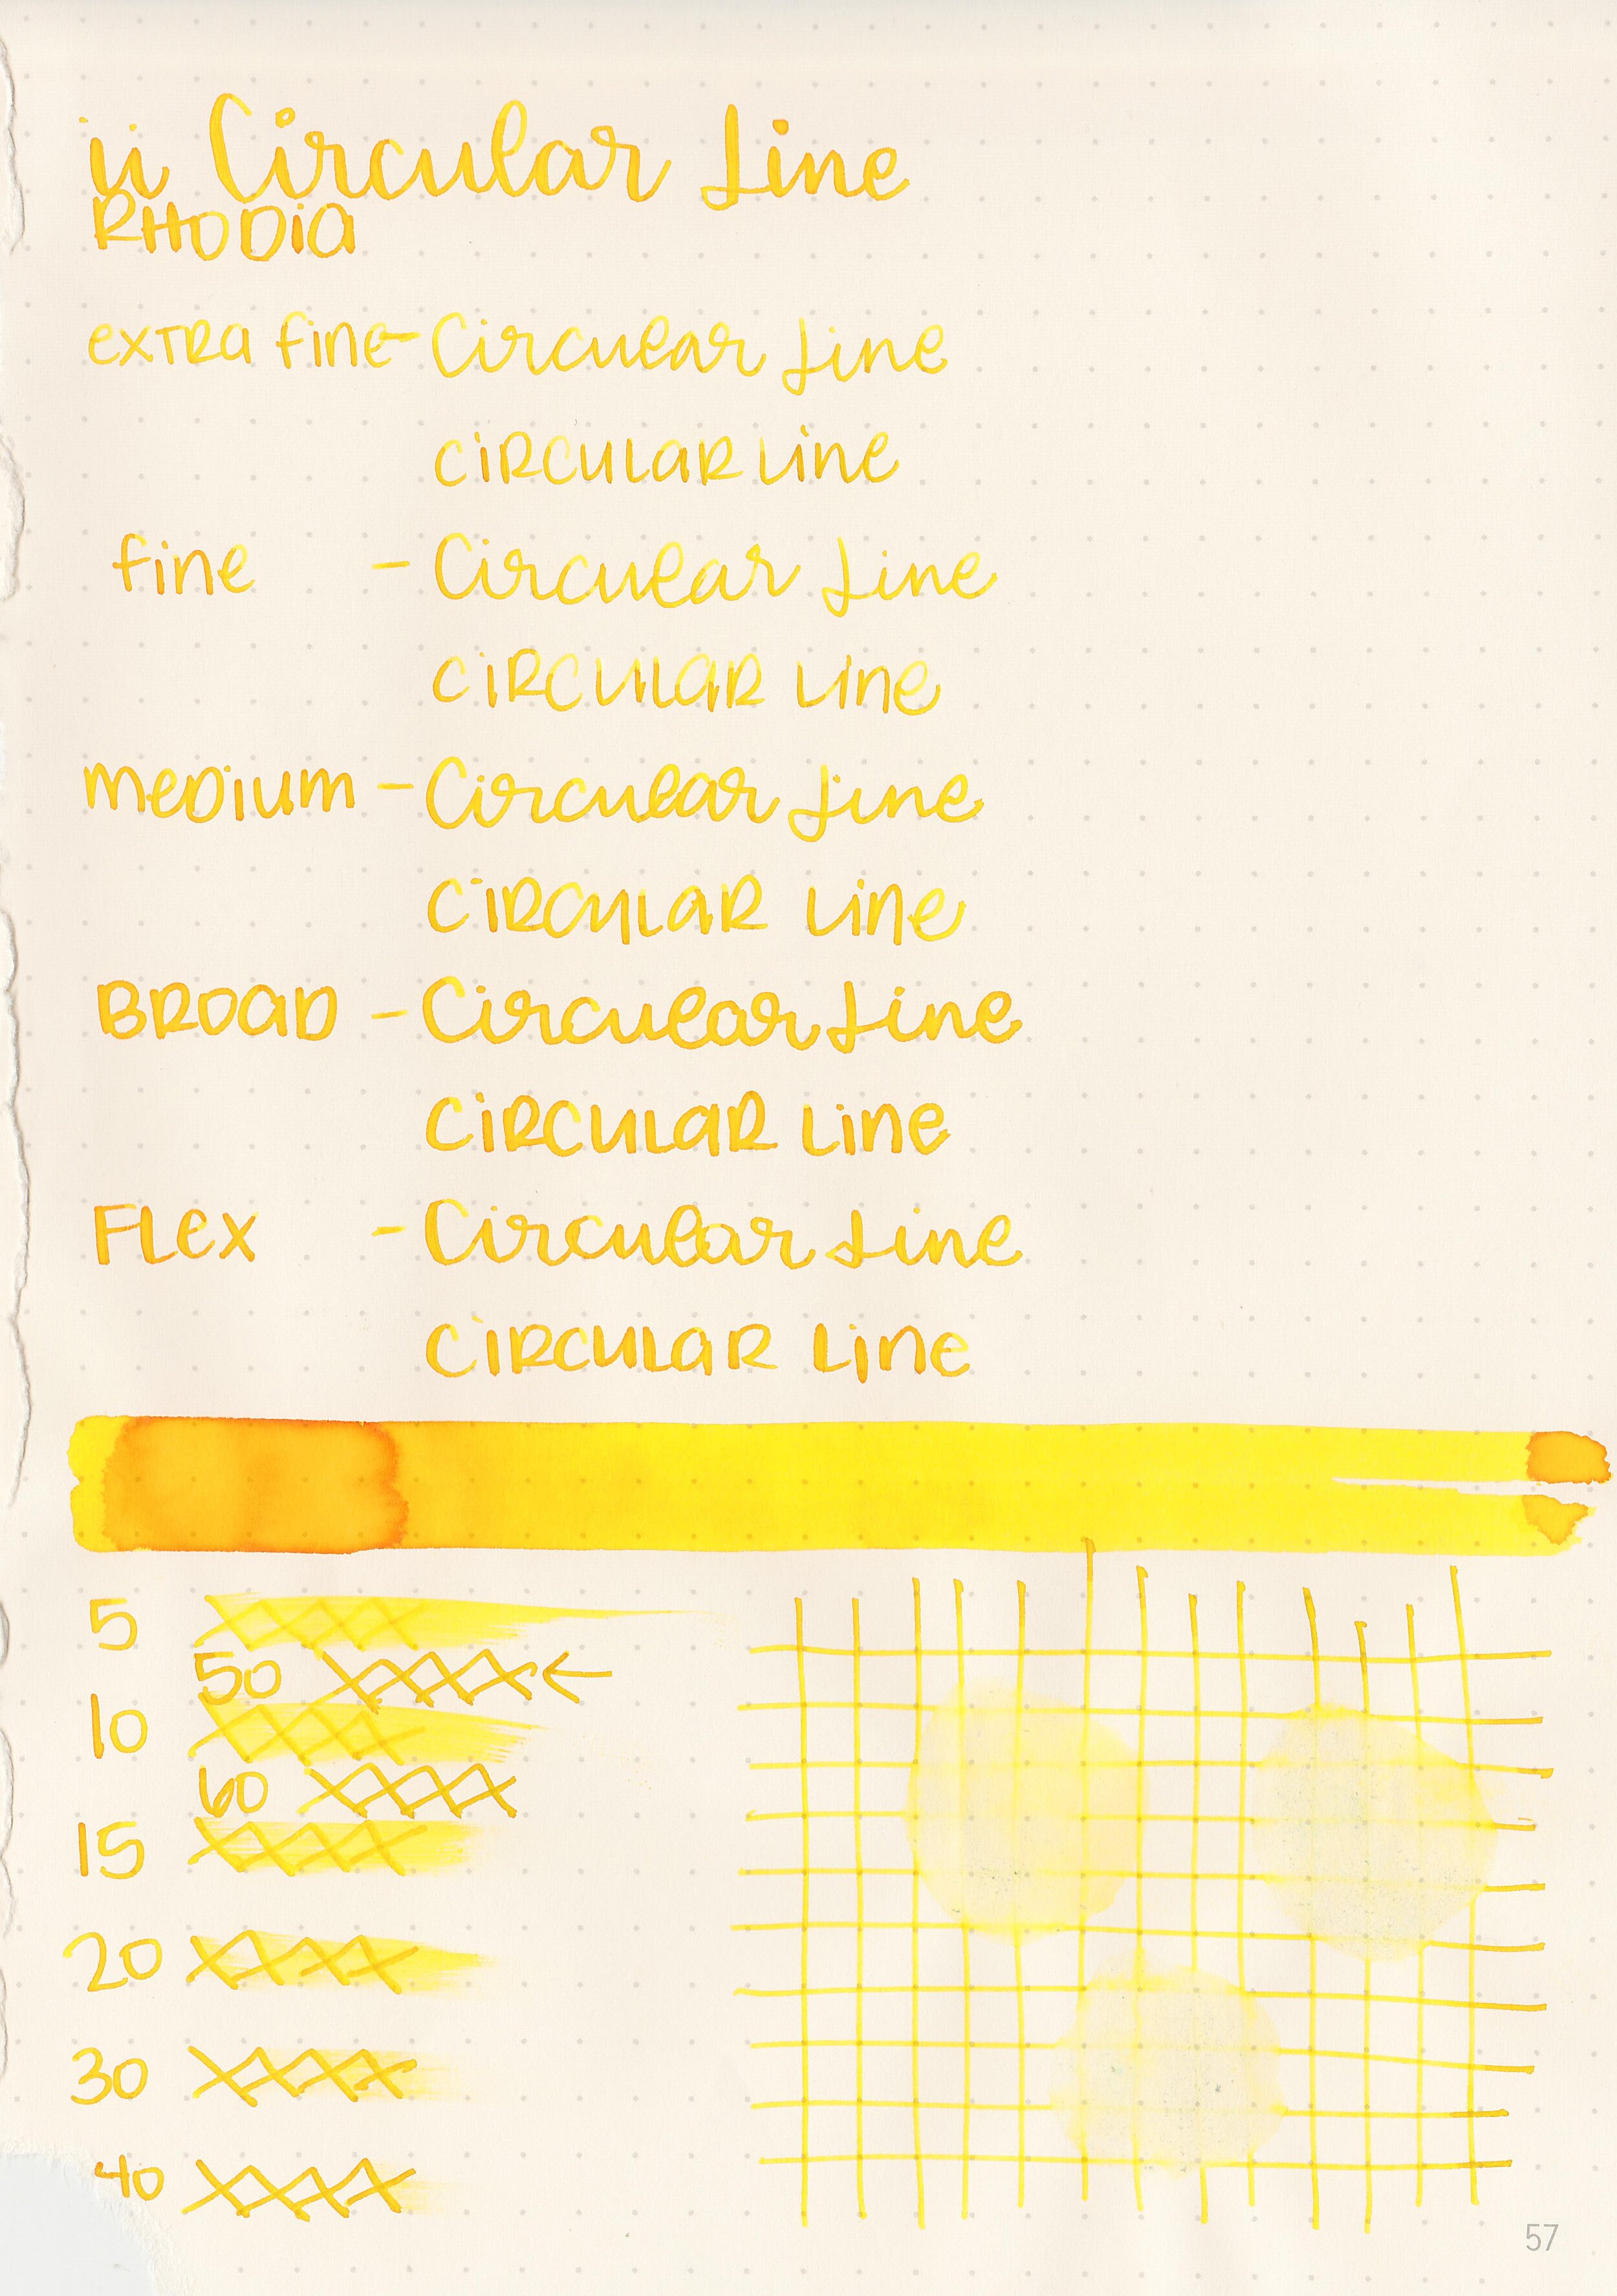 ii Circular Line
RHODIA
extra fine - Circular Line
CIRCULAR Line
fine - Circular Line
CIRCULAR Line
medium - Circular Line
CIRCULAR Line
BROAD - Circular Line
CIRCULAR Line
FLex - Circular Line
CIRCULAR Line
5
50 ←
10
60
15
20
30
40
57